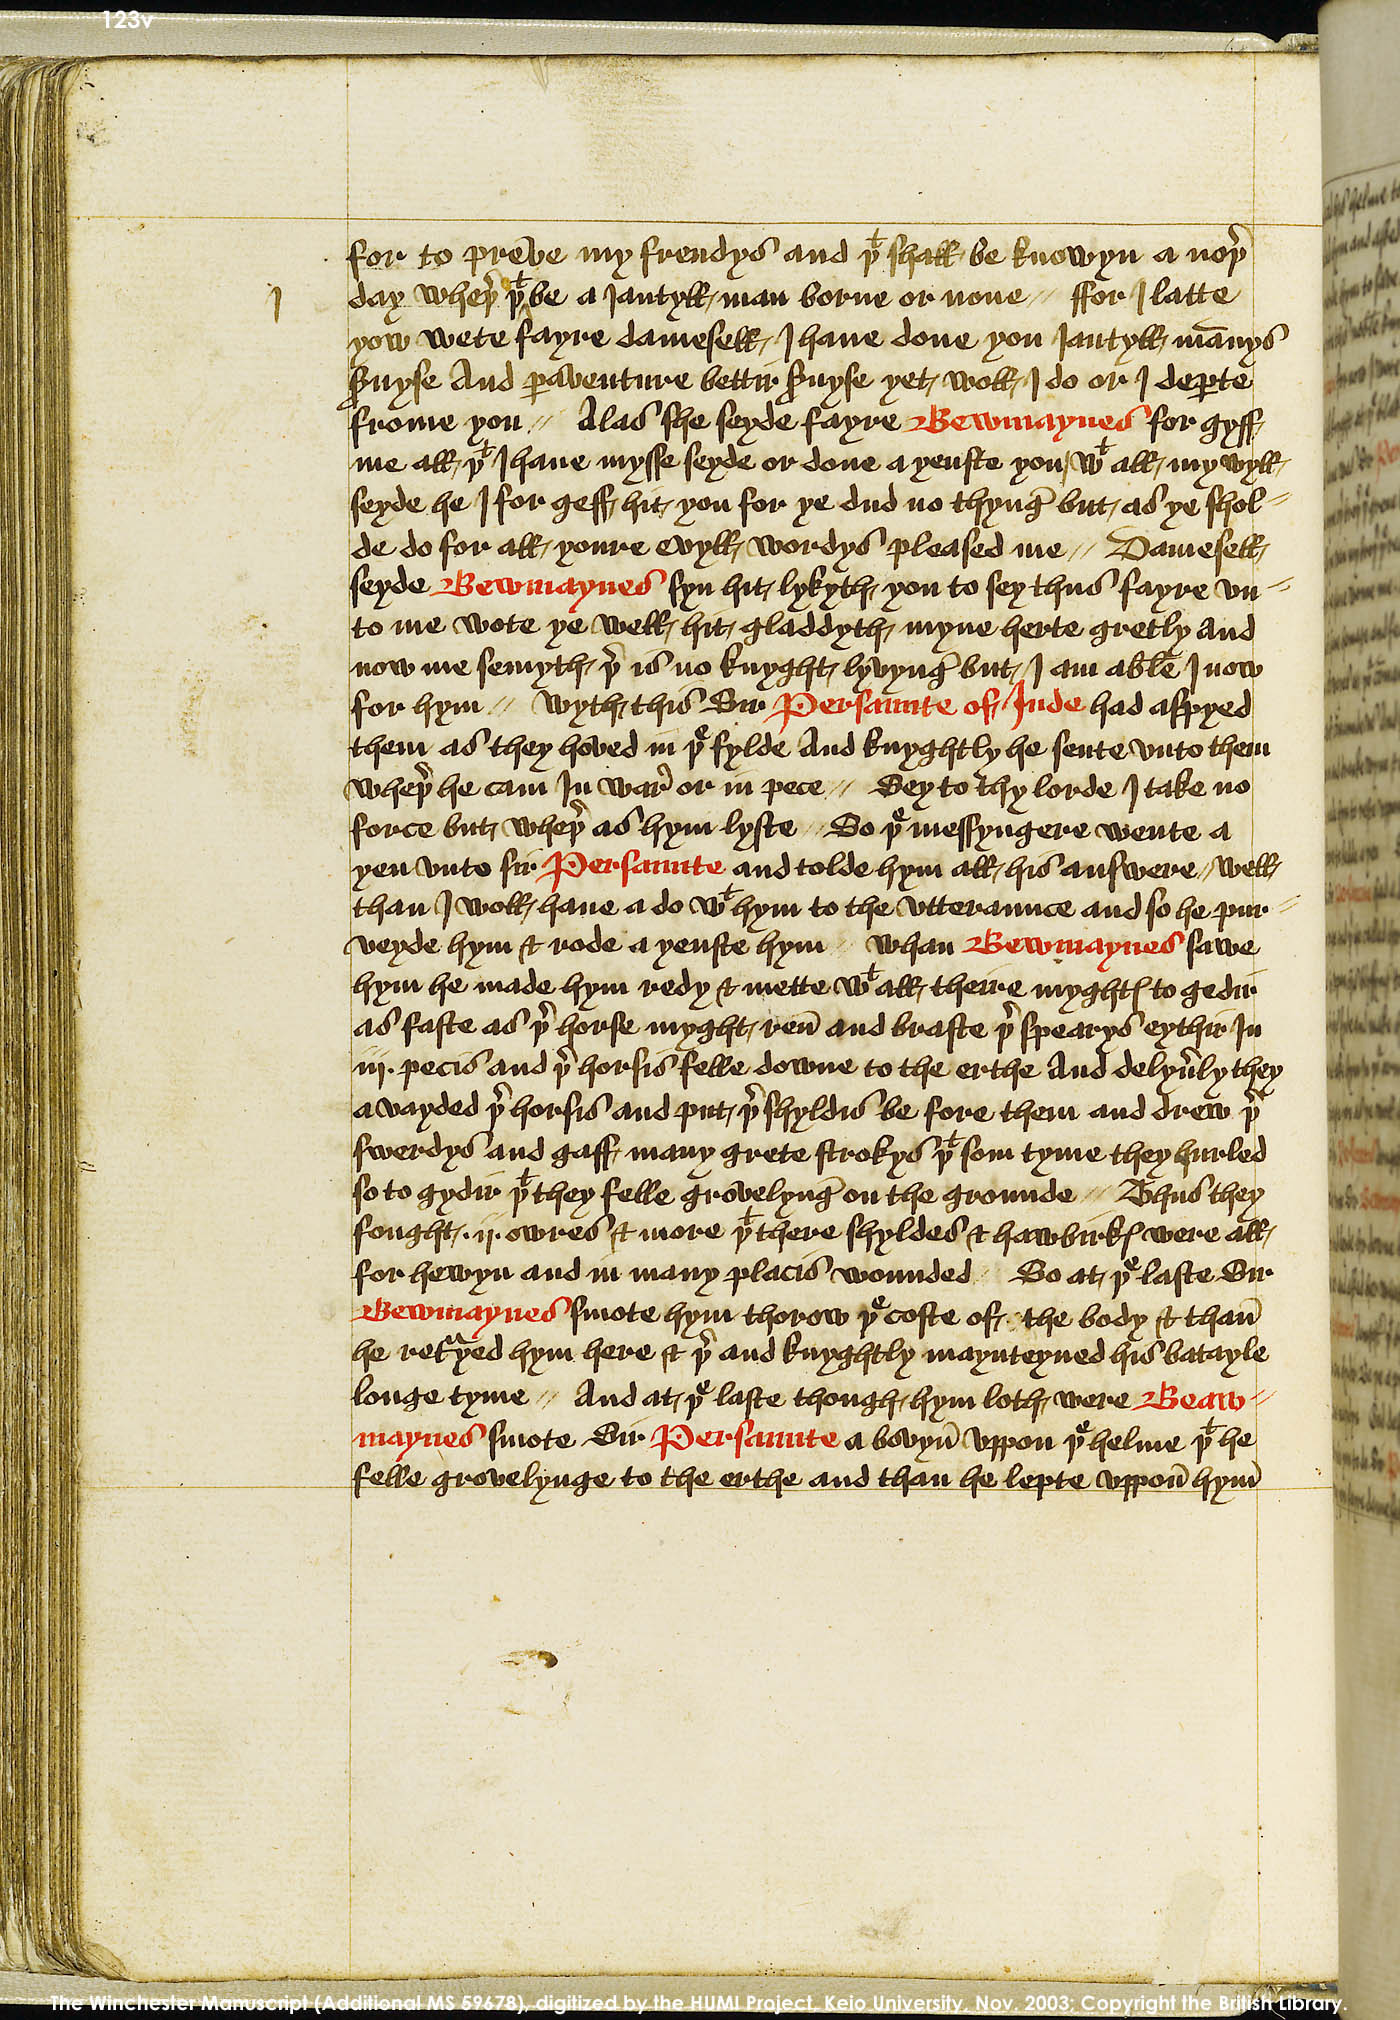 123v
for to preve my frendys and þͭ shall be knowyn a noþ̉
day wheþ̉ þͭ be a Jantyll man borne or none // ffor I latte
I
yow wete fayre damesell I haue done you Jantyll mānys
ꝭuyse And ꝑaventure bettir ꝭuyse yet woll I do or I deꝑte
frome you // Alas she seyde fayre Bewmaynes for gyff
me all þͭ I haue mysse seyde or done a yenste you / wͭ all my wyll
seyde he I for geff hit you for ye dud no thynḡ but as ye shol=
de do for all youre evyll wordys pleased me // Damesell
seyde Bewmaynes syn hit lykyth you to sey thus fayre vn=
to me wote ye well hit gladdyth myne herte gretly And
now me semyth þ̉ is no knyght lyvynḡ but I am able I now
for hym // Wyth this Sir Persaunte of Inde had aspyed
them as they hoved in þͤ fylde And knyghtly he sente vnto them
wheþ̉ he cam In war̉ or in pece // Sey to thy lorde I take no
force but wheþ̉ as hym lyste // So þͤ messyngere wente a
yen vnto sir Persaunte and tolde hym all his answere // Well
than I woll haue a do wͭ hym to the vtteraunce and so he pur=
veyde hym & rode a yenste hym // Whan Bewmaynes sawe
hym he made hym redy & mette wͭ all theire myghtꝭ to gedir
as faste as þ̉ horse myght ren̄ and braste þ̉ spearys eythir In
iij. pecis and þ̉ horsis felle downe to the erthe And delyv̉ly they
a vayded þ̉ horsis and put þ̉ shyldis be fore them and drew þ̉
swerdys and gaff many grete strokys þͭ som tyme they hurled
so to gydir þͭ they felle grovelynḡ on the grounde // Thus they
fought .ij. owres & more þͭ there shyldes & hawbirkꝭ were all
for hewyn and in many placis wounded // So at þͤ laste Sir
Bewmaynes smote hym thorow þͤ coste of the body & than̄
he retᵃyed hym here & þ̉ and knyghtly maynteyned his batayle
longe tyme // And at þͤ laste though hym loth were Beaw=
maynes smote Sir Persaunte a bovyn̄ vppon þͤ helme þͭ he
felle grovelynge to the erthe and than he lepte vppon̄ hym̄
The Winchester Manuscript (Additional MS 59678), digitized by the HUMI Project, Keio University, Nov. 2003; Copyright the British Library.